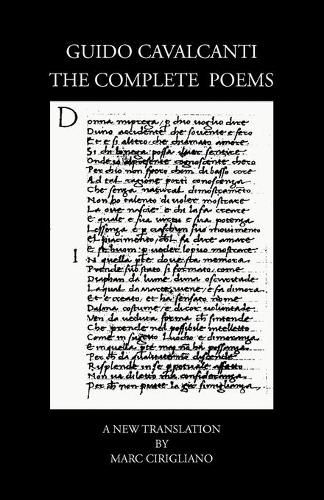 GUIDO CAVALCANTI
THE COMPLETE POEMS
Donna mi prega, p chio voglio dire
Duno accidente che sovente e fero
Et e si altero, che chiamato amore
Si chi lo nega possa sentire
Onde cognoscente chero
Per chio non spero chom di basso core
Ad tal ragione porti conoscenza
Che senza natural dimostramento
Non ho talento di voler mostrare
La ove nascie e chi lo fa creare
E quale e sua virtu e sua potenza
Lessenza e p suo movimento
El piacimento chel fa dire amare
E se huom p veder lo puo mostrare
I
Ni quella pte dove sta memora
Prende suo stato si formato, come
Diaphan da lume duna oscuritade
Laqual da marte viene, e fa dimora
Et e creato, et ha sensato nome
Dalma costume, e di cor voluntade
Ven da veduta forma ch sintende
Che prende nel possibile intelletto
Come in luocho e dimoranza
E in quella pte mai no ha possanza
Per ch da discende
Risplende in se effetto
Non ha diletto ma
Per ch non puote la gir simiglianza
A NEW TRANSLATION
BY
MARC CIRIGLIANO